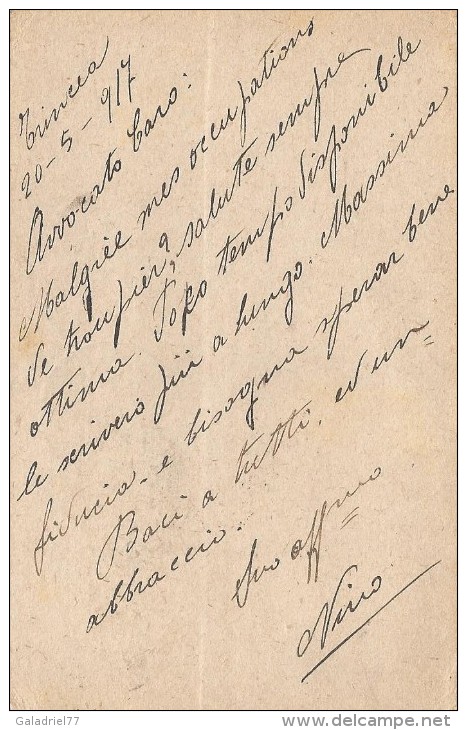 Trincea
20-5-917
Avvocato Caro:
Malgrèe mes occupations
de troupier, salute sempre
ottima. Dopo tempo disponibile
le scriverò più a lungo. Massima
fiducia - e bisogna sperar bene
Baci a tutti. ed un=
abbraccio.
Suo affmo
Nino
Galadriel77
delcampe.net